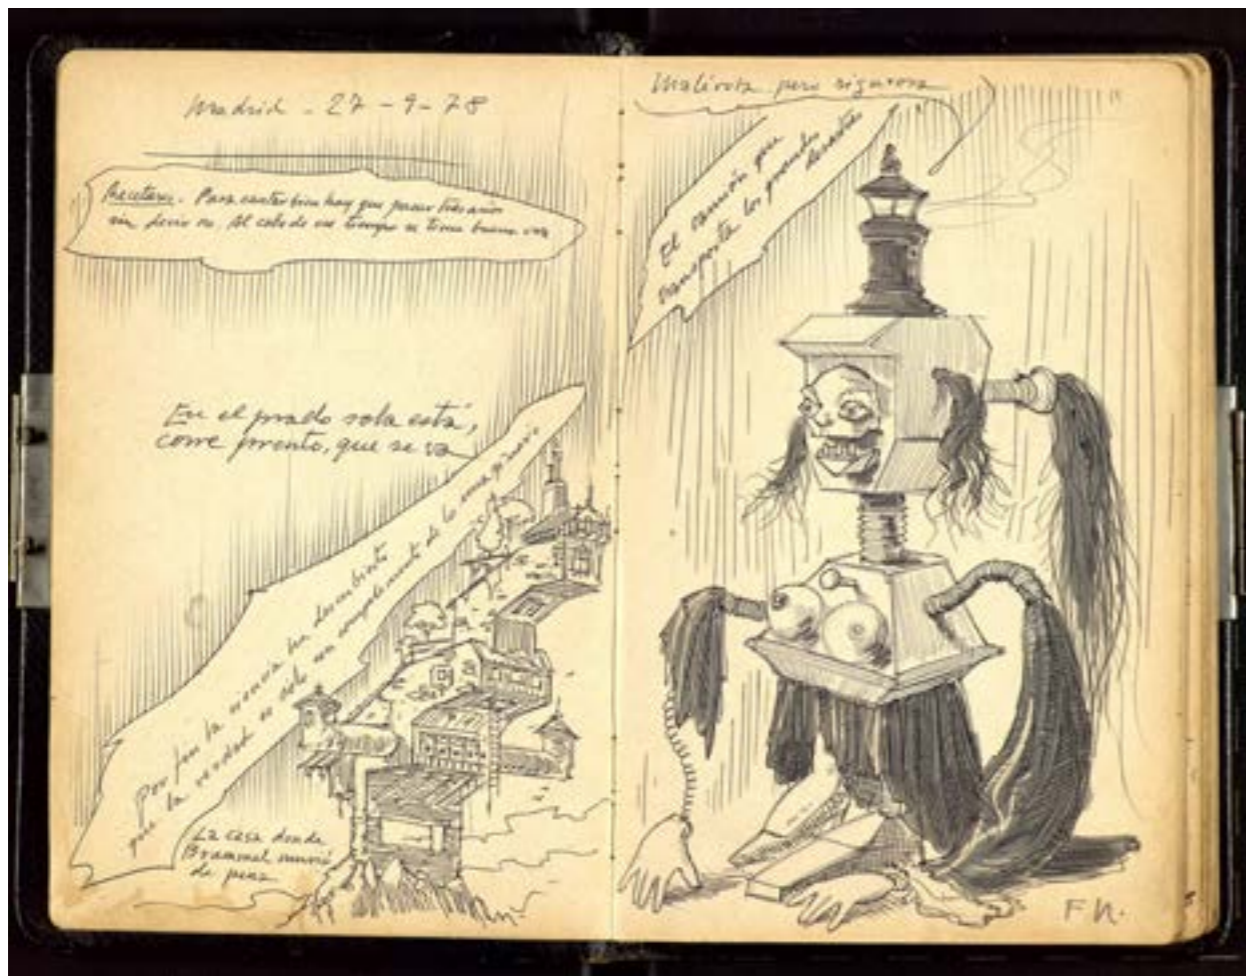 Madrid - 27 - 9 - 78
Recetario. Para cantar bien hay que pasar tres años
sin decir no. Al cabo de ese tiempo se tiene buena voz
En el prado sola está,
corre pronto, que se va
Por fin la ciencia ha descubierto
que la verdad es solo un complemento de lo
La casa donde
Brummel murió
de pena
pero rigurosa
El camión que
transporta los grandes
desastres
F N.